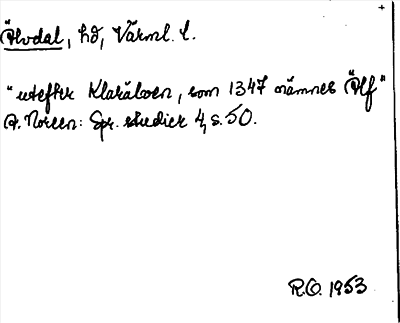 Älvdal, hd, Värml. l.
"utefter Klarälven, som 1347 nämnes Älf"
A. Noreen: Spr. studier 4, s. 50.
R.O. 1953